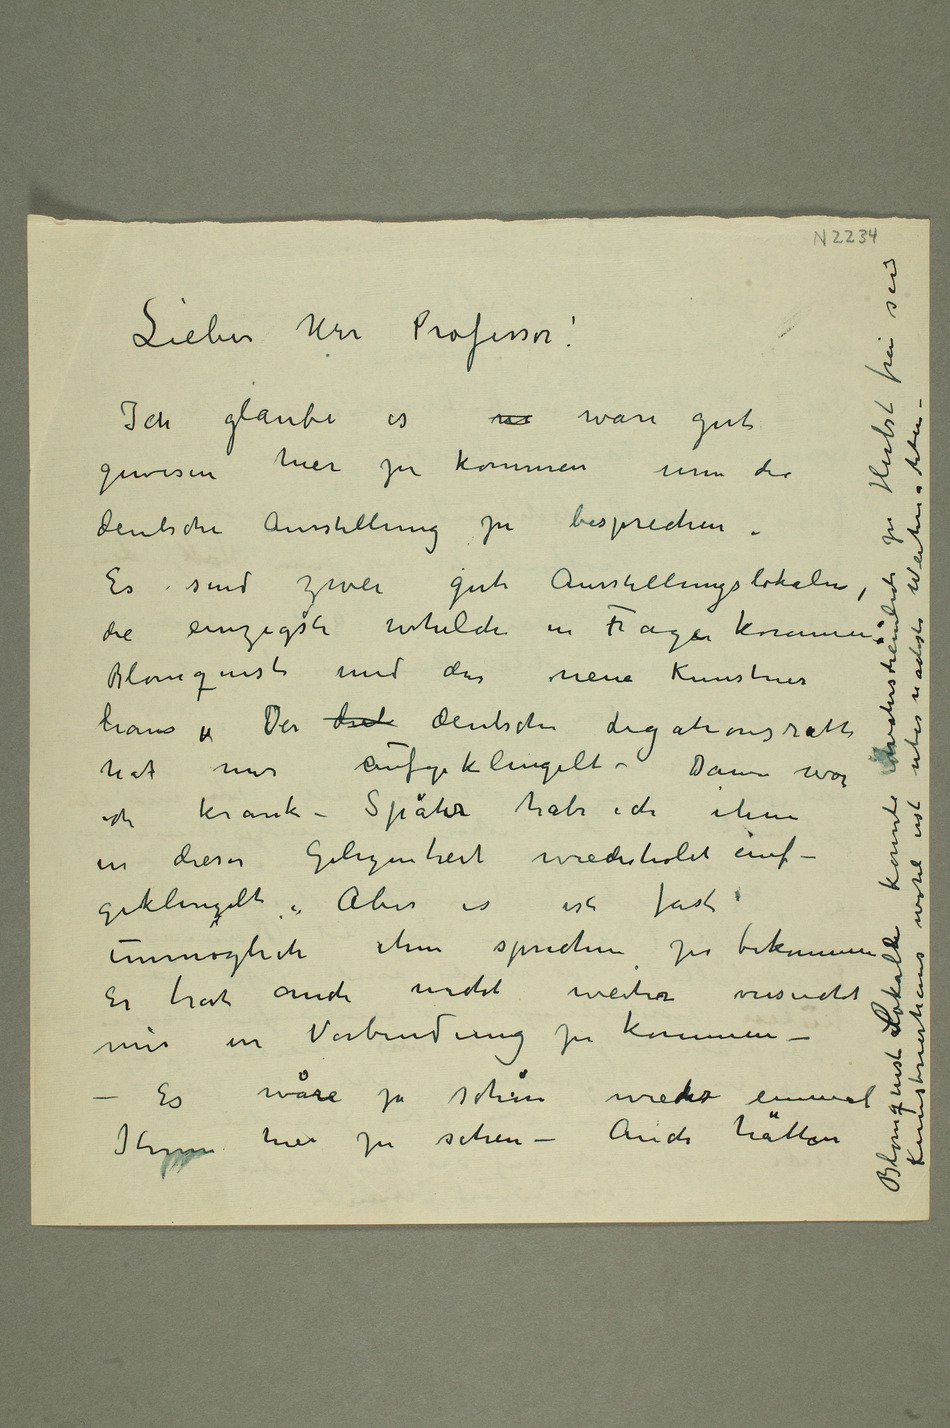 N 2234
Lieber Herr Professor!
Ich glaube es wäre gut
gewesen hier zu kommen um die
deutsche Ausstellung zu besprechen.
Es sind zwei gute Ausstellungslokalen,
die einzigste whelche in Frage kommen:
Blomquist und das neue Kunstner
haus. Der deutsche Legationsratt
hat mir aufgeklingelt – Dann war
ich krank – Später habe ich ihm
in dieser Gelegenheit wiederholet auf-
geklingelt. Aber es ist fast
unmöglich ihm sprechen zu bekommen
Er hat auch nicht weiter versucht
mir in Verbindung zu kommen –
– Es wäre ja schön wieder einmal
Ihnen hier zu sehen – Auch hätten
Blomquist Lokalle konnte wahrscheinlich zu Herbst frei sein
Kunstnerhaus wohl erst über nächste Weihnachten –